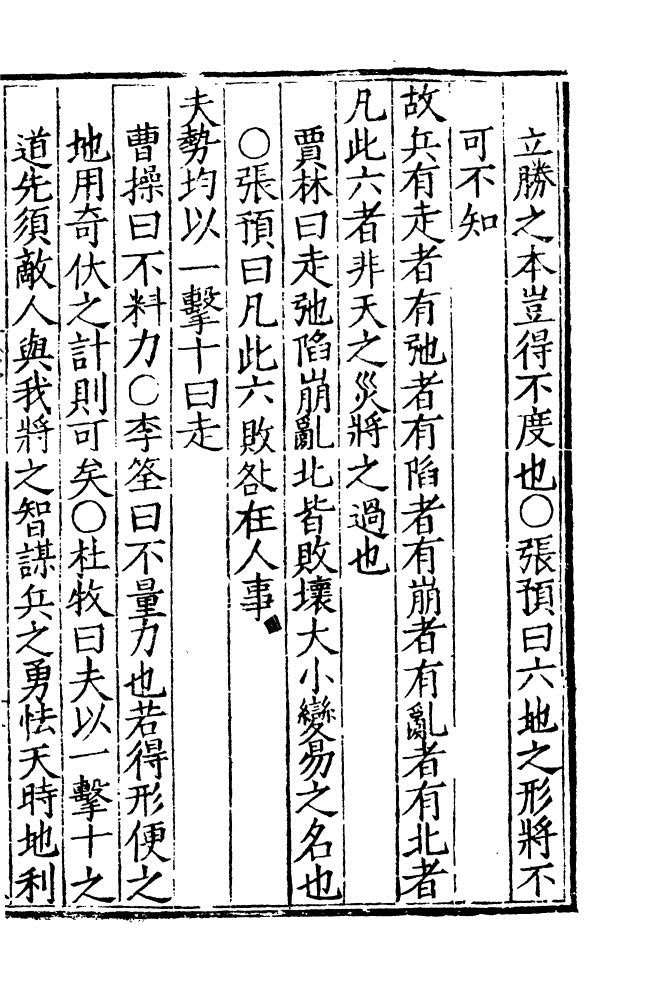 立勝之本豈得不度也○張預曰六地之形將不
可不知
故兵有走者有弛者有陷者有崩者有亂者有北者
凡此六者非天之災將之過也
賈林曰走弛陷崩亂北皆敗壞大小變易之名也
○張預曰凡此六敗咎在人事
夫勢均以一擊十曰走
曹操曰不料力○李筌曰不量力也若得形便之
地用奇伏之計則可矣○杜牧曰夫以一擊十之
道先須敵人與我將之智謀兵之勇怯天時地利